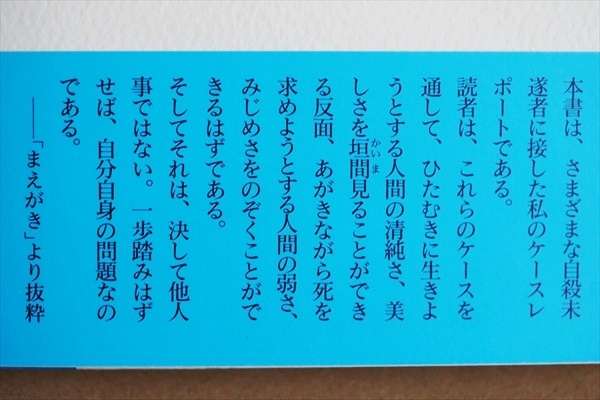 本書は、さまざまな自殺未
遂者に接した私のケースレ
ポートである。
読者は、これらのケースを
通して、ひたむきに生きよ
うとする人間の清純さ、美
しさを垣間見ることができ
かいま
る反面、あがきながら死を
求めようとする人間の弱さ、
みじめさをのぞくことがで
きるはずである。
そしてそれは、決して他人
事ではない。一歩踏みはず
せば、自分自身の問題なの
である。
――「まえがき」より抜粋